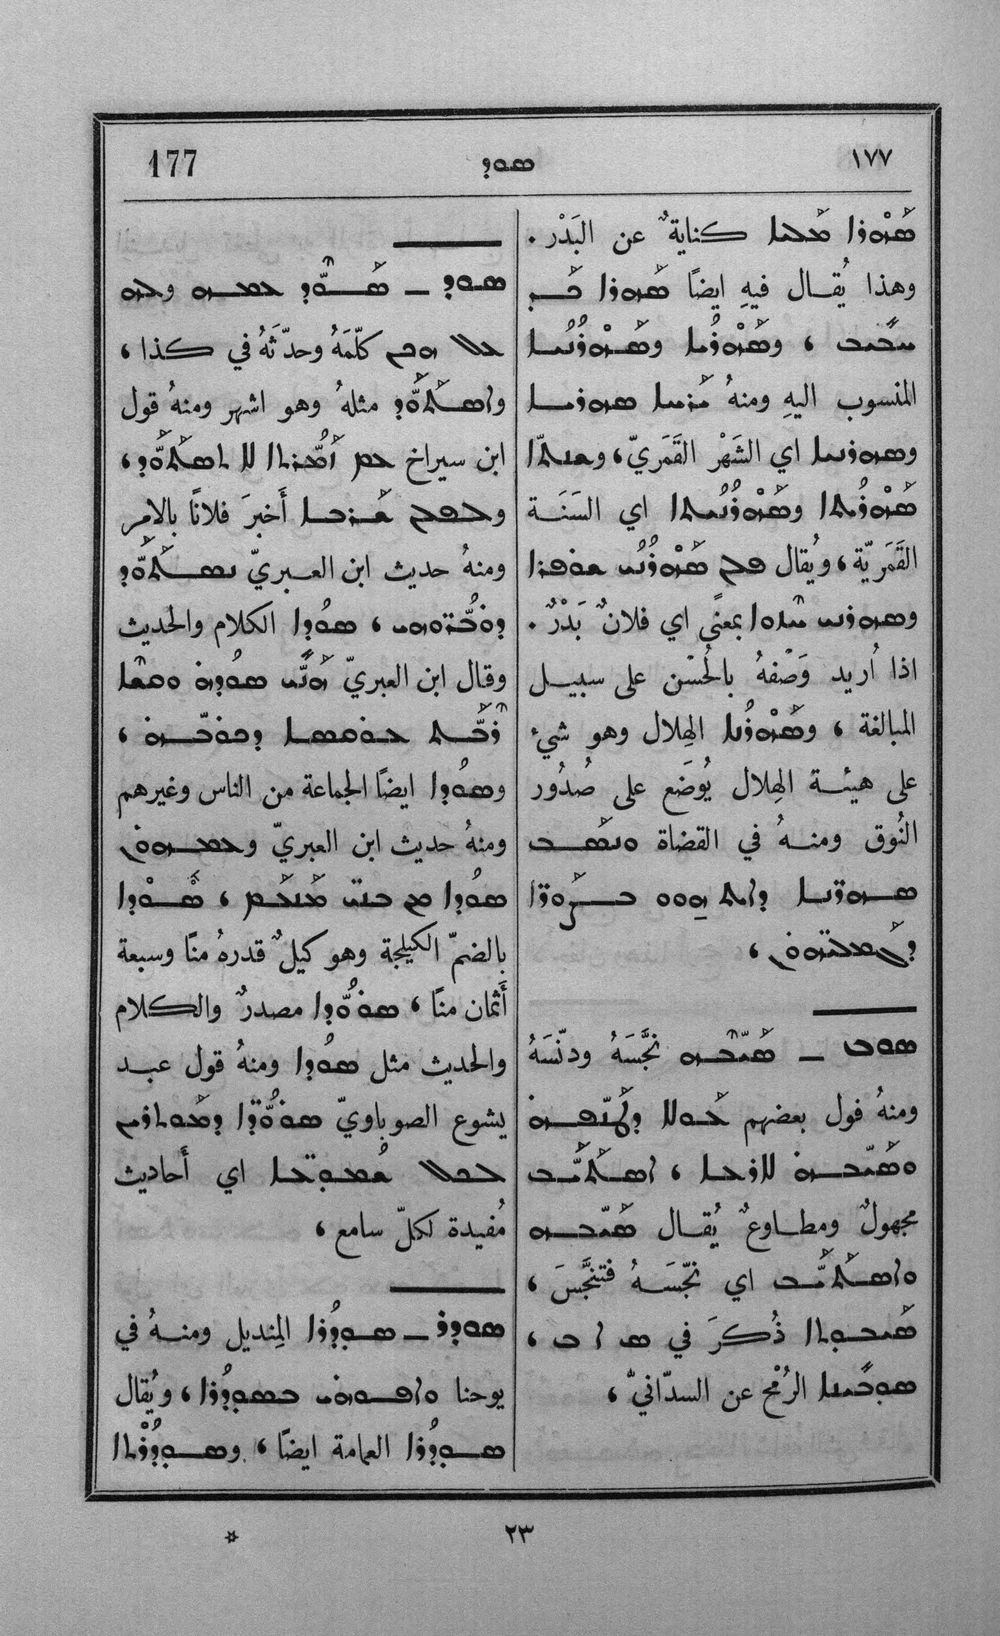 ١٧٧ ܣܘܕ 177
ܣܗܪܐ ܡܠܝܐ كنايةٌ عن البَدْر .
وهذا يُقال فيهِ ايضًا ܣܗܪܐ
، وܣܗܪܝܐ وܣܗܪܢܝܐ
المنسوب اليهِ ومنهُ ܝܪܚܐ ܣܗܪܝܐ
وܣܗܪܢܝܐ اي الشَهْر القَمَريّ ، وܫܢܬܐ
ܣܗܪܝܬܐ وܣܗܪܢܝܬܐ اي السَنَة
القَمَريّة ، ويُقال ܦܠܢ ܣܗܪܢܝ ܫܘܦܪܐ
وܣܗܪܢܝ ܚܙܘܐ بمعنًى اي فلانٌ بَدْرٌ .
اذا أُريد وَصْفهُ بالحُسْن على سبيل
المبالغة ، وܣܗܪܢܐ الهِلال وهو شيء
على هيئة الهِلال يُوضَع على صُدُور
النُوق ومنهُ في القضاة ܘܢܣܒ
ܣܗܪܢܐ ܕܐܝܬ ܗܘܘ ܒܨܘܪܐ
ܕܓܡܠܝܗܘܢ ،
ܣܘܒ — ܣܝܒܗ نجَّسَهُ ودنّسَهُ
ومنهُ قول بعضهم ܥܘܠܐ ܕܛܢܦܗ
ܘܣܝܒܗ ܠܐܪܥܐ ، ܐܣܬܝܒ
مجهولٌ ومطاوعٌ يُقال ܣܝܒܗ
ܘܐܣܬܝܒ اي نجّسَهُ فتنجَّسَ ،
ذُكرَ في ܣ ܐ ܒ ،
الرُمْح عن السدّانيّ ،
ܣܘܕ — ܣܘܕ ܥܡܗ وܠܗ
ܥܠ ܗܕܡ كلّمَهُ وحدّثَهُ في كذا ،
وܐܣܬܘܕ مثلهُ وهو اشهر ومنهُ قول
ابن سيراخ ܥܡ ܠܐ ܬܣܬܘܕ ،
وܠܦܠܢ ܫܪܒܐ أَخبرَ فلانًا بالامر
ومنهُ حديث ابن العبريّ ܢܣܬܘܕ
، ܣܘܕܐ الكلام والحديث
وقال ابن العبريّ ܗܢܝ ܣܘܕܗ ܘܩܡܬܐ
،
وܣܘܕܐ ايضًا الجماعة من الناس وغيرهم
ومنهُ حديث ابن العبريّ وܥܡܗܘܢ
ܣܘܕܐ ܡܢ ܒܢܝ ܡܠܟܐ ، ܣܘܕܐ
بالضمّ الكيلجة وهو كيلٌ قدرهُ منًا وسبعة
أَثمان منًا ، ܣܘܘܕܐ مصدرٌ والكلام
والحديث مثل ܣܘܕܐ ومنهُ قول عبد
يشوع الصوباويّ ܣܘܘܕܐ ܕܡܘܬܪܝܢ
ܠܟܠ ܫܡܘܥܐ اي أَحاديث
مُفيدة لكلّ سامع ،
ܣܘܕܪ — ܣܘܕܪܐ المِنديل ومنهُ في
يوحنا ܘܐܦܘܗܝ ܒܣܘܕܪܐ ، ويُقال
ܣܘܕܪܐ العمامة ايضًا ، وܣܘܕܪܬܐ
٢٣ *